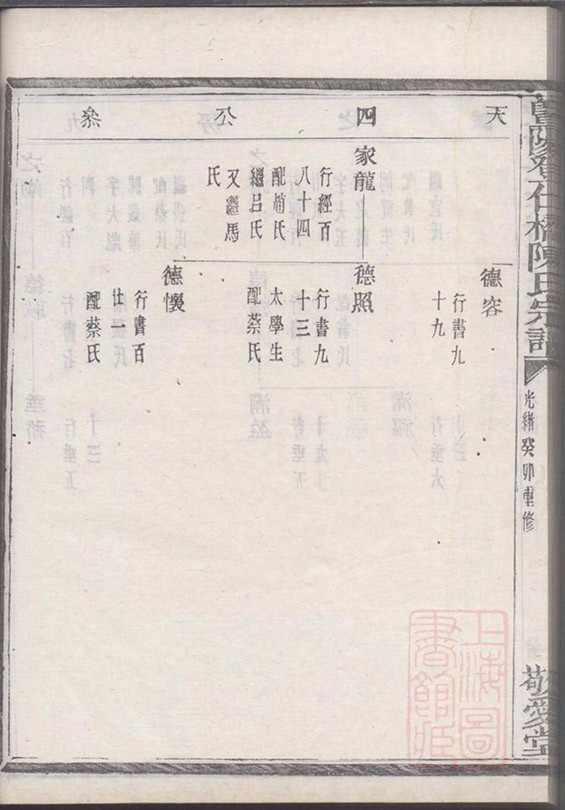 暨陽孝仁橋陳氏宗譜
光緒癸卯重修
敬愛堂
天
四
公
叅
德容
行書九
十九
家龍
行經百
八十四
配趙氏
繼呂氏
又繼馬
氏
德照
行書九
十三
太學生
配蔡氏
德懷
行書百
廿一
配蔡氏
上海圖
書館臧